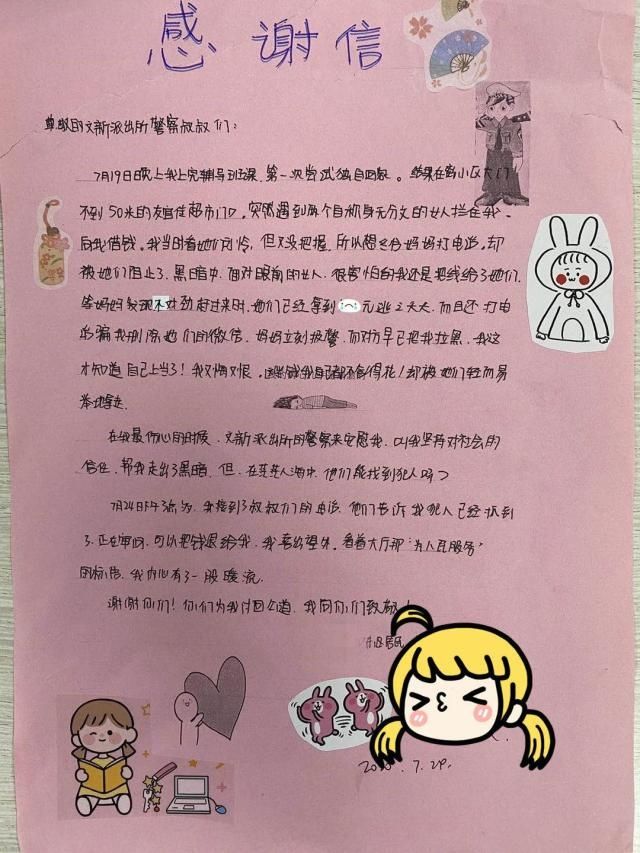 感谢信
尊敬的文新派出所警察叔叔们：
7月19日晚上我上完辅导班课，第一次尝试独自回家。结果在离小区大门
不到50米的友谊佳超市门口，突然遇到两个自称身无分文的女人拦住我，
向我借钱。我当时看她们可怜，但又没把握，所以想去给妈妈打电话，却
被她们阻止了。黑暗中，面对眼前的女人，很害怕的我还是把钱给了她们。
等妈妈发现不对劲赶过来时，她们已经拿到 元逃之夭夭，而且还打电
话骗我删除她们的微信，妈妈立刻报警，而对方早已把我拉黑，我这
才知道自己上当了！我又悔又恨。这些钱我自己都不舍得花！却被她们轻而易
举地拿走。
在我最伤心的时候，文新派出所的警察来安慰我，叫我坚持对社会的
信任，帮我走出了黑暗。但，在茫茫人海中，他们能找到犯人吗？
7月24日下午3点 ，我接到了叔叔们的电话，他们告诉我犯人已经抓到
了，正在审问，可以把钱退给我，我喜出望外。看着大厅那“为人民服务”
的标语，我内心有了一股暖流。
谢谢你们！你们为我讨回公道，我向你们致敬！
7.29.